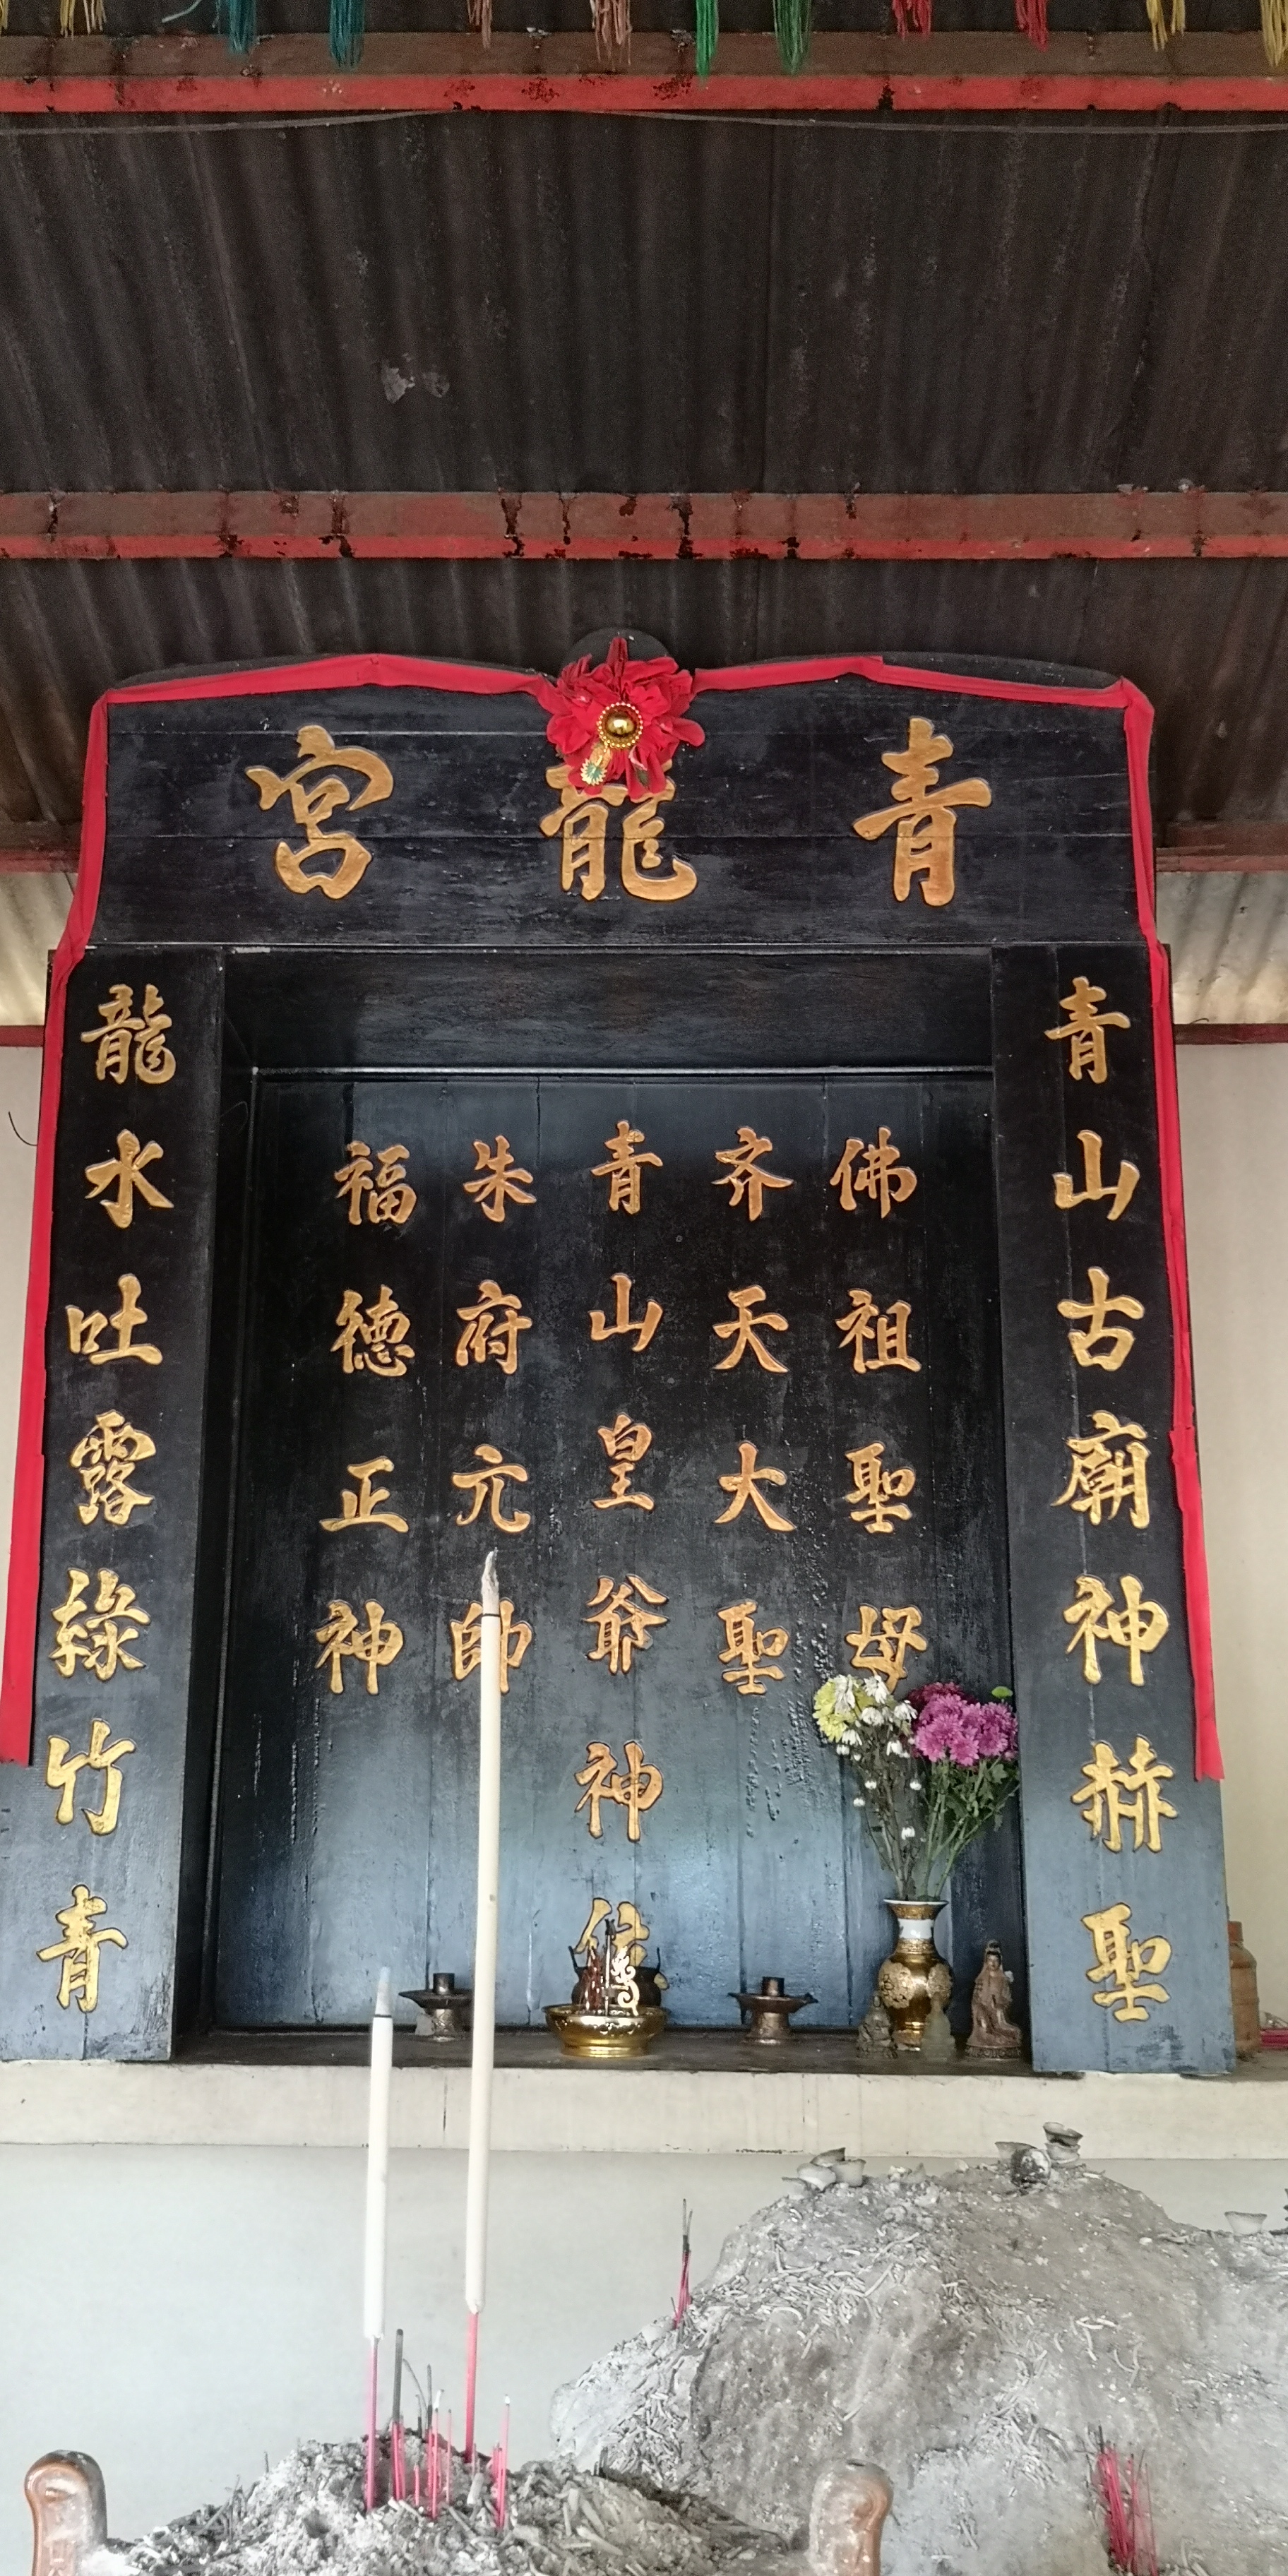 青龍宮
青山古廟神赫聖
佛祖聖母
齐天大聖
青山皇爺神位
朱府元帥
福德正神
龍水吐露綠竹青